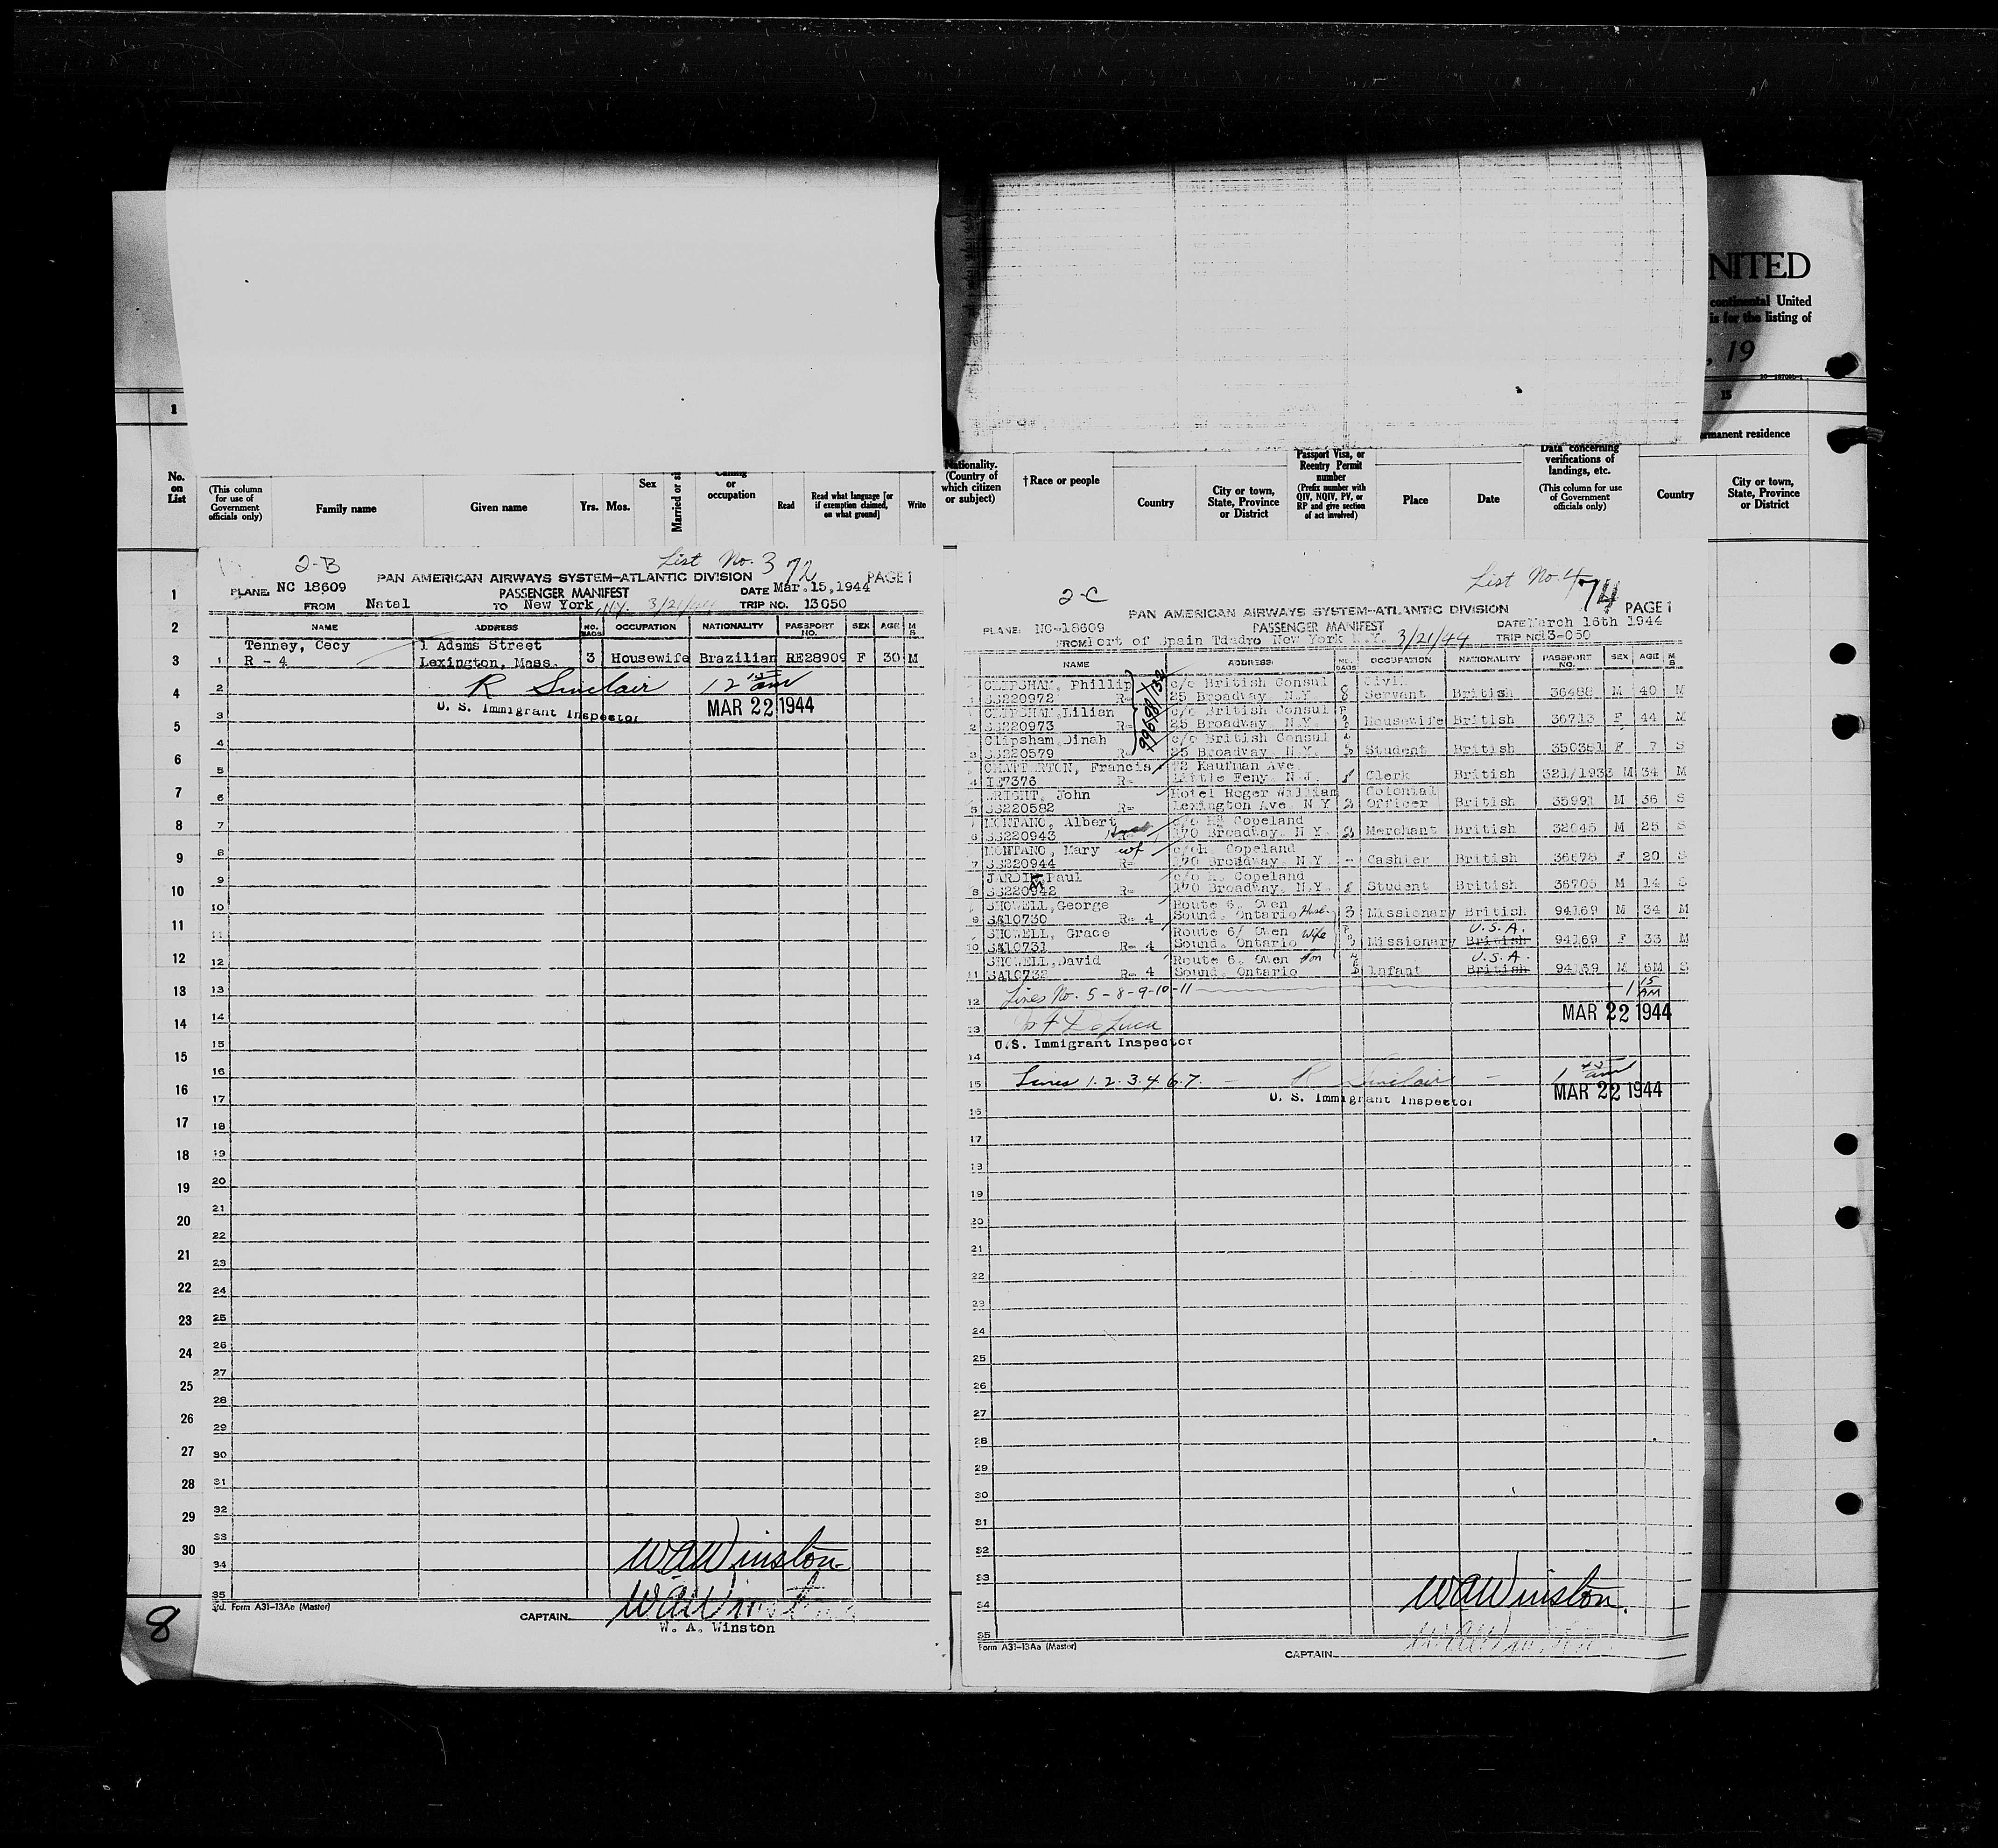 NITED
continental United
is for the listing of
, 19
1
15
rmanent residence
No. on List
(This column for use of Government officials only)
Family name
Given name
Yrs. Mos.
Sex
Married or si
Calling or occupation
Read
Read what language [or if exemption claimed, on what ground]
Write
Nationality. (Country of which citizen or subject)
† Race or people
Country
City or town, State, Province or District
Passport Visa, or Reentry Permit number
(Prefix number with QIV, NQIV, PV, or RP and give section of act involved)
Place
Date
Data concerning verifications of landings, etc.
(This column for use of Government officials only)
Country
City or town, State, Province or District
1
2
3
4
5
6
7
8
9
10
11
12
13
14
15
16
17
18
19
20
21
22
23
24
25
26
27
28
29
30
8
2-B
List No. 3
72
PAN AMERICAN AIRWAYS SYSTEM—ATLANTIC DIVISION
PAGE 1
PLANE: NC 18609
PASSENGER MANIFEST
DATE Mar. 15, 1944
FROM Natal TO New York, N.Y. 3/21/44 TRIP NO. 13050
NAME ADDRESS NO. BAGS OCCUPATION NATIONALITY PASSPORT NO. SEX AGE M S
Tenney, Cecy 1 Adams Street
1 R - 4 Lexington, Mass. 3 Housewife Brazilian RE28909 F 30 M
2 R Sinclair 12 15 am
U. S. Immigrant Inspector MAR 22 1944
3
4
5
6
7
8
9
10
11
12
13
14
15
16
17
18
19
20
21
22
23
24
25
26
27
28
29
30
31
32
33
34
35
W A Winston
W A Winston
Std. Form A31-13Aa (Master)
CAPTAIN
W. A. Winston
2-C
List No. 4
74
PAN AMERICAN AIRWAYS SYSTEM—ATLANTIC DIVISION
PAGE 1
PLANE: NC-18609
PASSENGER MANIFEST
DATE March 16th 1944
FROM ort of Spain Tdad TO New York N.Y. 3/21/44 TRIP NO 13-050
NAME ADDRESS NO. BAGS OCCUPATION NATIONALITY PASSPORT NO. SEX AGE M S
CLIPSHAM, Phillip c/o British Consul Civil
1 SS220972 R- 25 Broadway. N.Y. 8 Servant British 36488 M 40 M
CLIPSHAM, Lilian c/o British Consul
2 SS220973 R- 25 Broadway. N.Y. Housewife British 36713 F 44 M
Clipsham, Dinah c/o British Consul
3 SS220579 R- 25 Broadway. N.Y. Student British 350381 F 7 S
CHATTERTON, Francis 72 Kaufman Ave.
4 IE7376 R- Little Feny. N.J. 1 Clerk British 321/1933 M 34 M
WRIGHT, John Hotel Roger William Colonial
5 SS220582 R- Lexington Ave. N Y 2 Officer British 35991 M 36 S
MONTANO, Albert c/o H. Copeland
6 SS220943 170 Broadway. N Y. 2 Merchant British 32045 M 25 S
MONTANO, Mary wf c/o H. Copeland
7 SS220944 R- 170 Broadway. N Y - Cashier British 36678 F 20 S
JARDIM, Paul c/o H. Copeland
8 SS220942 R- 170 Broadway. N.Y. 1 Student British 36705 M 14 S
SHOWELL, George Route 6. Owen
9 SA10730 R- 4 Sound. Ontario Husb. 3 Missionary British 94169 M 34 M
SHOWELL, Grace Route 6/ Owen Wife U.S.A.
10 SA10731 R- 4 Sound. Ontario Missionary British 94169 F 33 M
SHOWELL, David Route 6. Owen Son U.S.A.
11 SA10732 R- 4 Sound. Ontario Infant British 94169 M 6M S
12 Lines No. 5 - 8 - 9 - 10 - 11 1 15 AM
MAR 22 1944
13 De Luca
U.S. Immigrant Inspector
14
15 Lines 1. 2. 3. 4. 6. 7. - R Sinclair - 1 45 am
U. S. Immigrant Inspector MAR 22 1944
16
17
18
19
20
21
22
23
24
25
26
27
28
29
30
31
32
33
34
35
W A Winston.
Form A31-13Aa (Master)
CAPTAIN